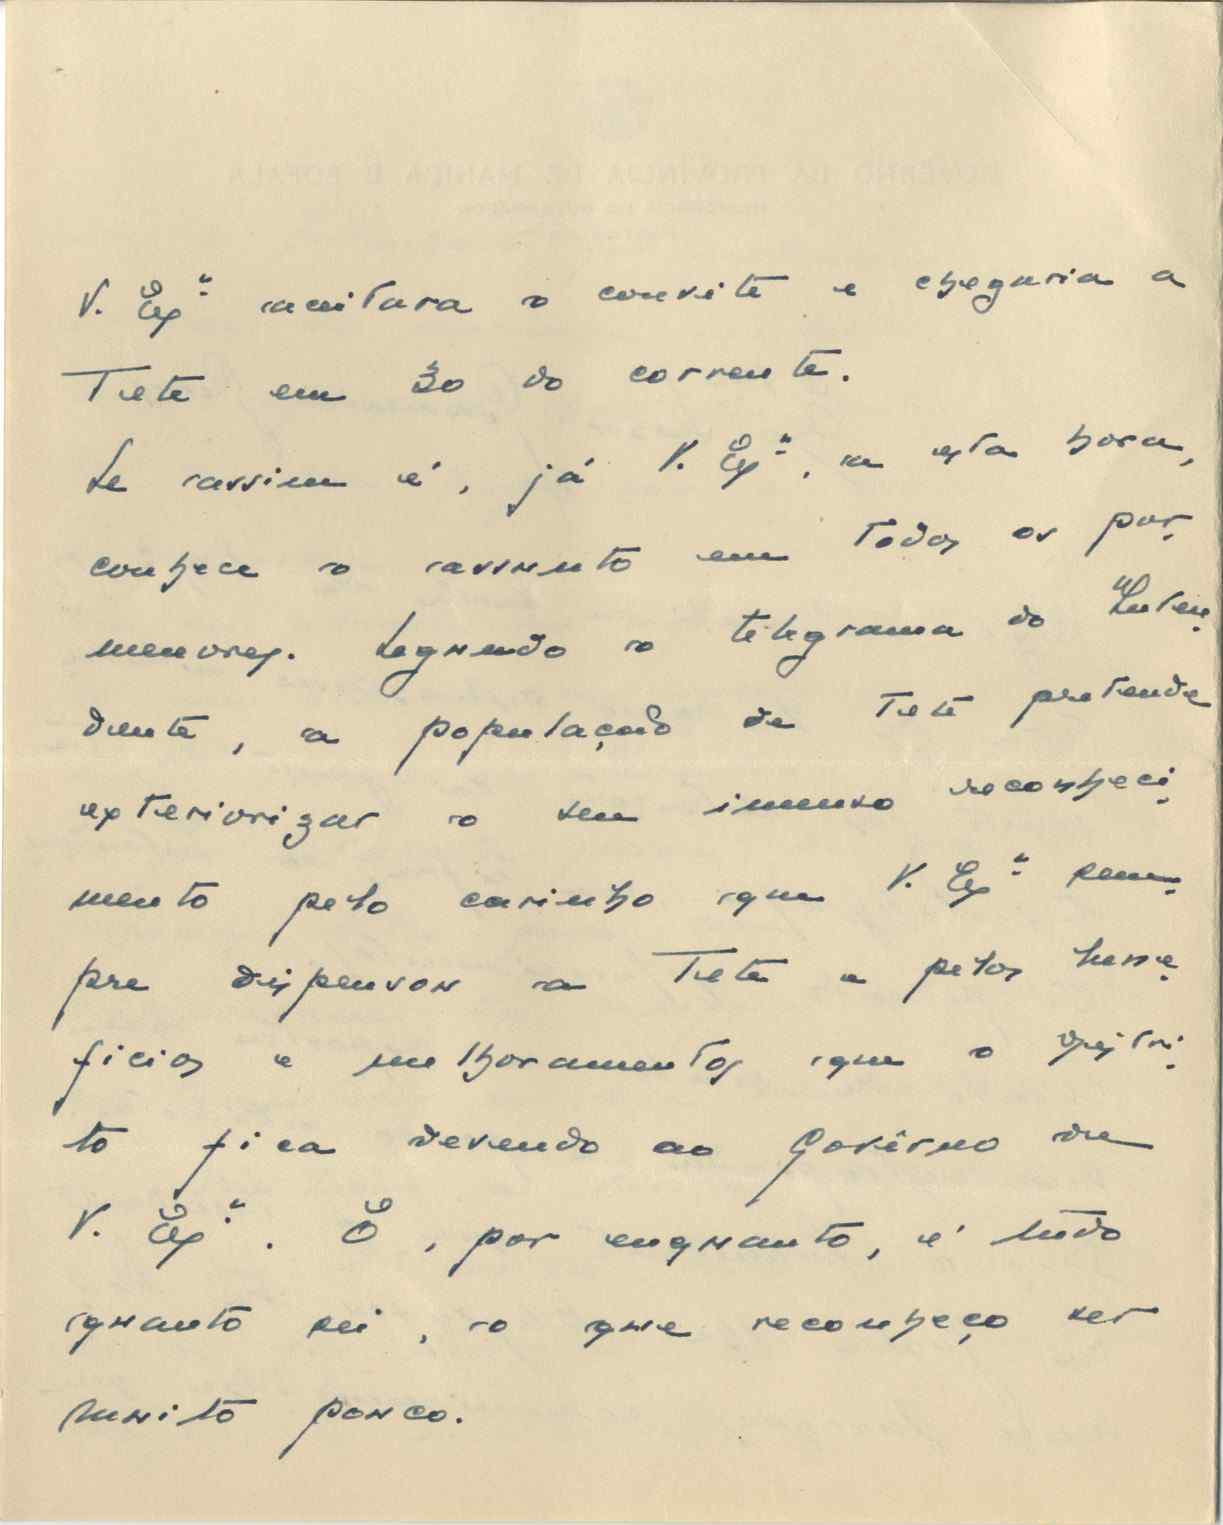 V. Exª aceitara o convite e chegaria a
Tete em 30 do corrente.
Se assim é, já V. Exª, a esta hora,
conhece o assunto em todos os por-
menores. Segundo o telegrama do Inten-
dente, a população de Tete pretende
exteriorizar o seu imenso reconheci-
mento pelo carinho que V. Exª sem-
pre dispensou a Tete e pelos bene-
ficios e melhoramentos que o distri-
to fica devendo ao Govêrno de
V. Exª. É, por enquanto, é tudo
quanto sei, o que reconheço ser
muito pouco.